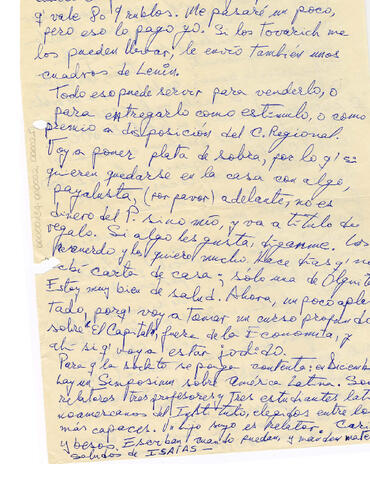 q' vale 80 rublos. Me pasaré un poco,
pero eso lo pago yo. Si los tovarich me
los pueden llevar, le envío también unos
cuadros de Lenin.
Todo eso puede servir para venderlo, o
para entregarlo como estímulo, o como
premio a disposición del C. Regional.
Voy a poner plata de sobra, por lo q' si
quieren quedarse en la casa con algo,
páguenlo, (por favor) adelante, no es
dinero del P. sino mío, y va a título de
regalo. Si algo les gusta, díganme. Los
recuerdo y los quiero mucho. Hace días q' no
recibí carta de casa; sólo una de Olguita
Estoy muy bien de salud. Ahora, un poco aplas
tado, porq' voy a tomar un curso profundo
sobre "El Capital", fuera de la Economía, y
ahí sí q' voy a estar jodido.
Para q' la se ponga contenta: en Diciembre
hay un Simposium sobre América Latina. Son
relatores tres profesores y tres estudiantes lati
noamericanos del Instituto, elegidos entre los
más capaces. Un hijo suyo es relator. Cariños
y besos. Escriban cuando puedan, y manden mate
saludos de ISAÍAS —